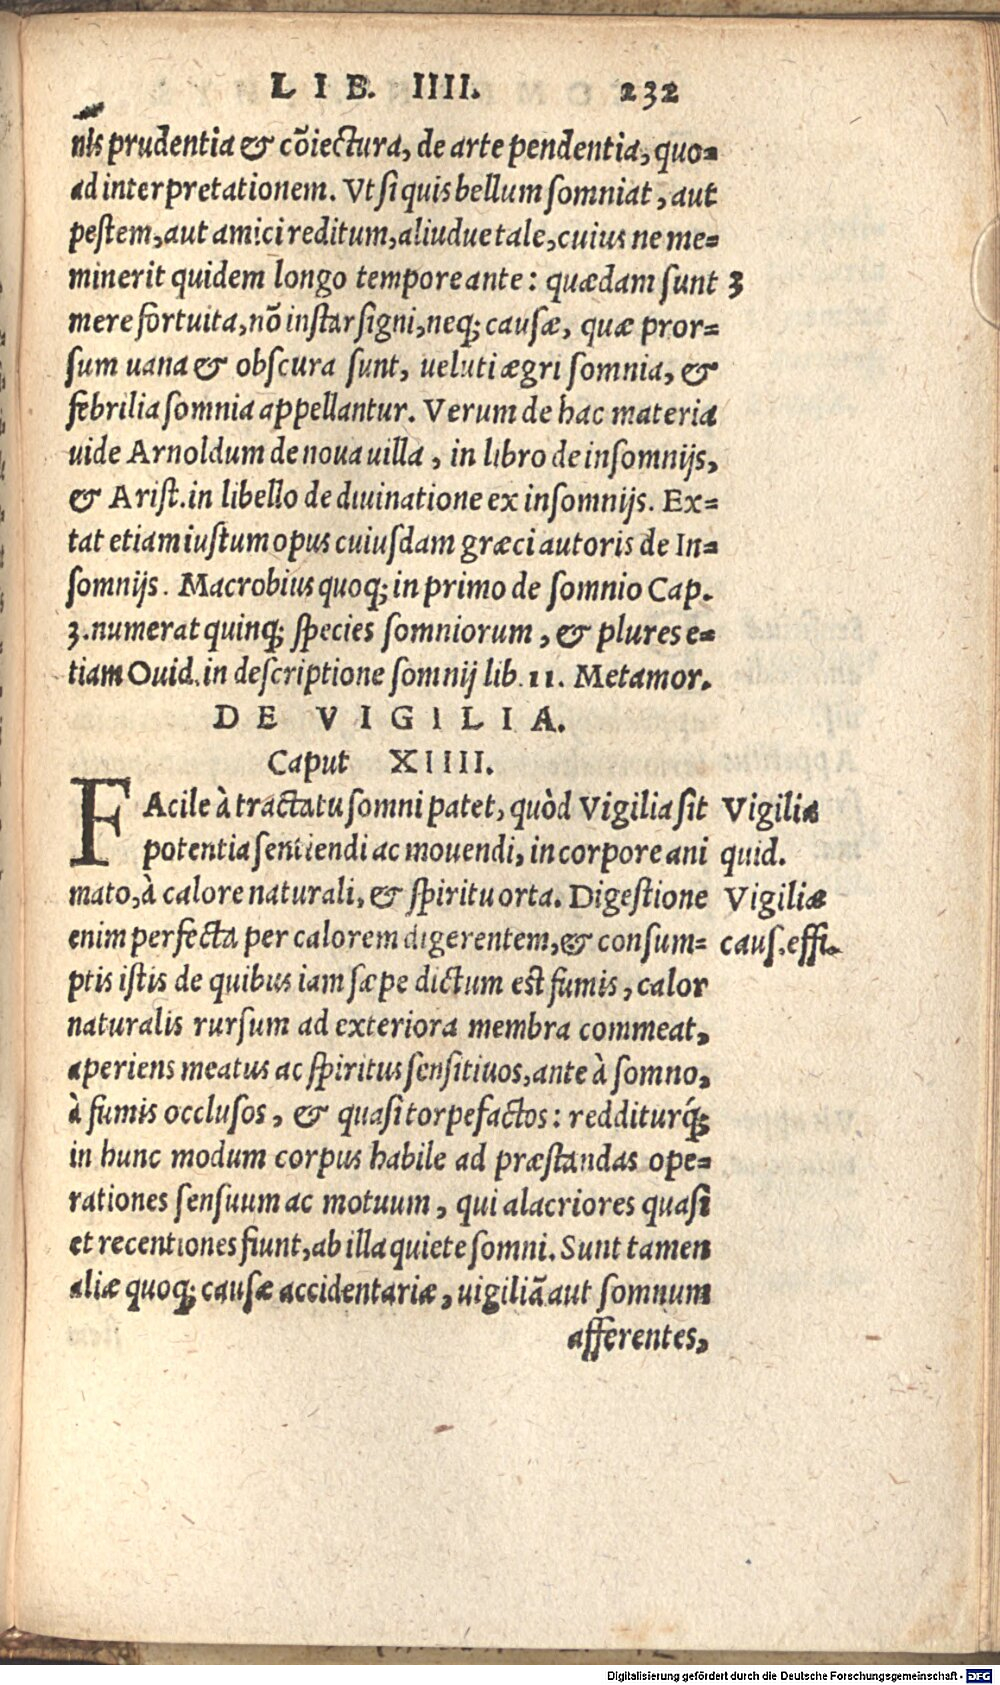 LIB. IIII. 232
nis prudentia & cõiectura, de arte pendentia, quo=
ad interpretationem. Vt si quis bellum somniat, aut
pestem, aut amici reditum, aliudue tale, cuius ne me=
minerit quidem longo tempore ante: quædam sunt 3
mere fortuita, nõ instar signi, neq; causæ, quæ pror=
sum uana & obscura sunt, ueluti ægri somnia, &
febrilia somnia appellantur. Verum de hac materia
uide Arnoldum de noua uilla, in libro de insomnijs,
& Arist. in libello de diuinatione ex insomnijs. Ex=
tat etiam iustum opus cuiusdam græci autoris de In=
somnijs. Macrobius quoq; in primo de somnio Cap.
3. numerat quinq; species somniorum, & plures e=
tiam Ouid. in descriptione somnij lib. 11. Metamor.
DE VIGILIA.
Caput XIIII.
FAcile à tractatu somni patet, quòd Vigilia sit Vigilia
potentia sentiendi ac mouendi, in corpore ani quid.
mato, à calore naturali, & spiritu orta. Digestione Vigiliæ
enim perfecta per calorem digerentem, & consum= caus. effi.
ptis istis de quibus iam sæpe dictum est fumis, calor
naturalis rursum ad exteriora membra commeat,
aperiens meatus ac spiritus sensitiuos, ante à somno,
à fumis occlusos, & quasi torpefactos: redditurq́;
in hunc modum corpus habile ad præstandas ope=
rationes sensuum ac motuum, qui alacriores quasi
et recentiones fiunt, ab illa quiete somni. Sunt tamen
aliæ quoq; causæ accidentariæ, uigiliã aut somnum
afferentes,
Digitalisierung gefördert durch die Deutsche Forschungsgemeinschaft - DFG